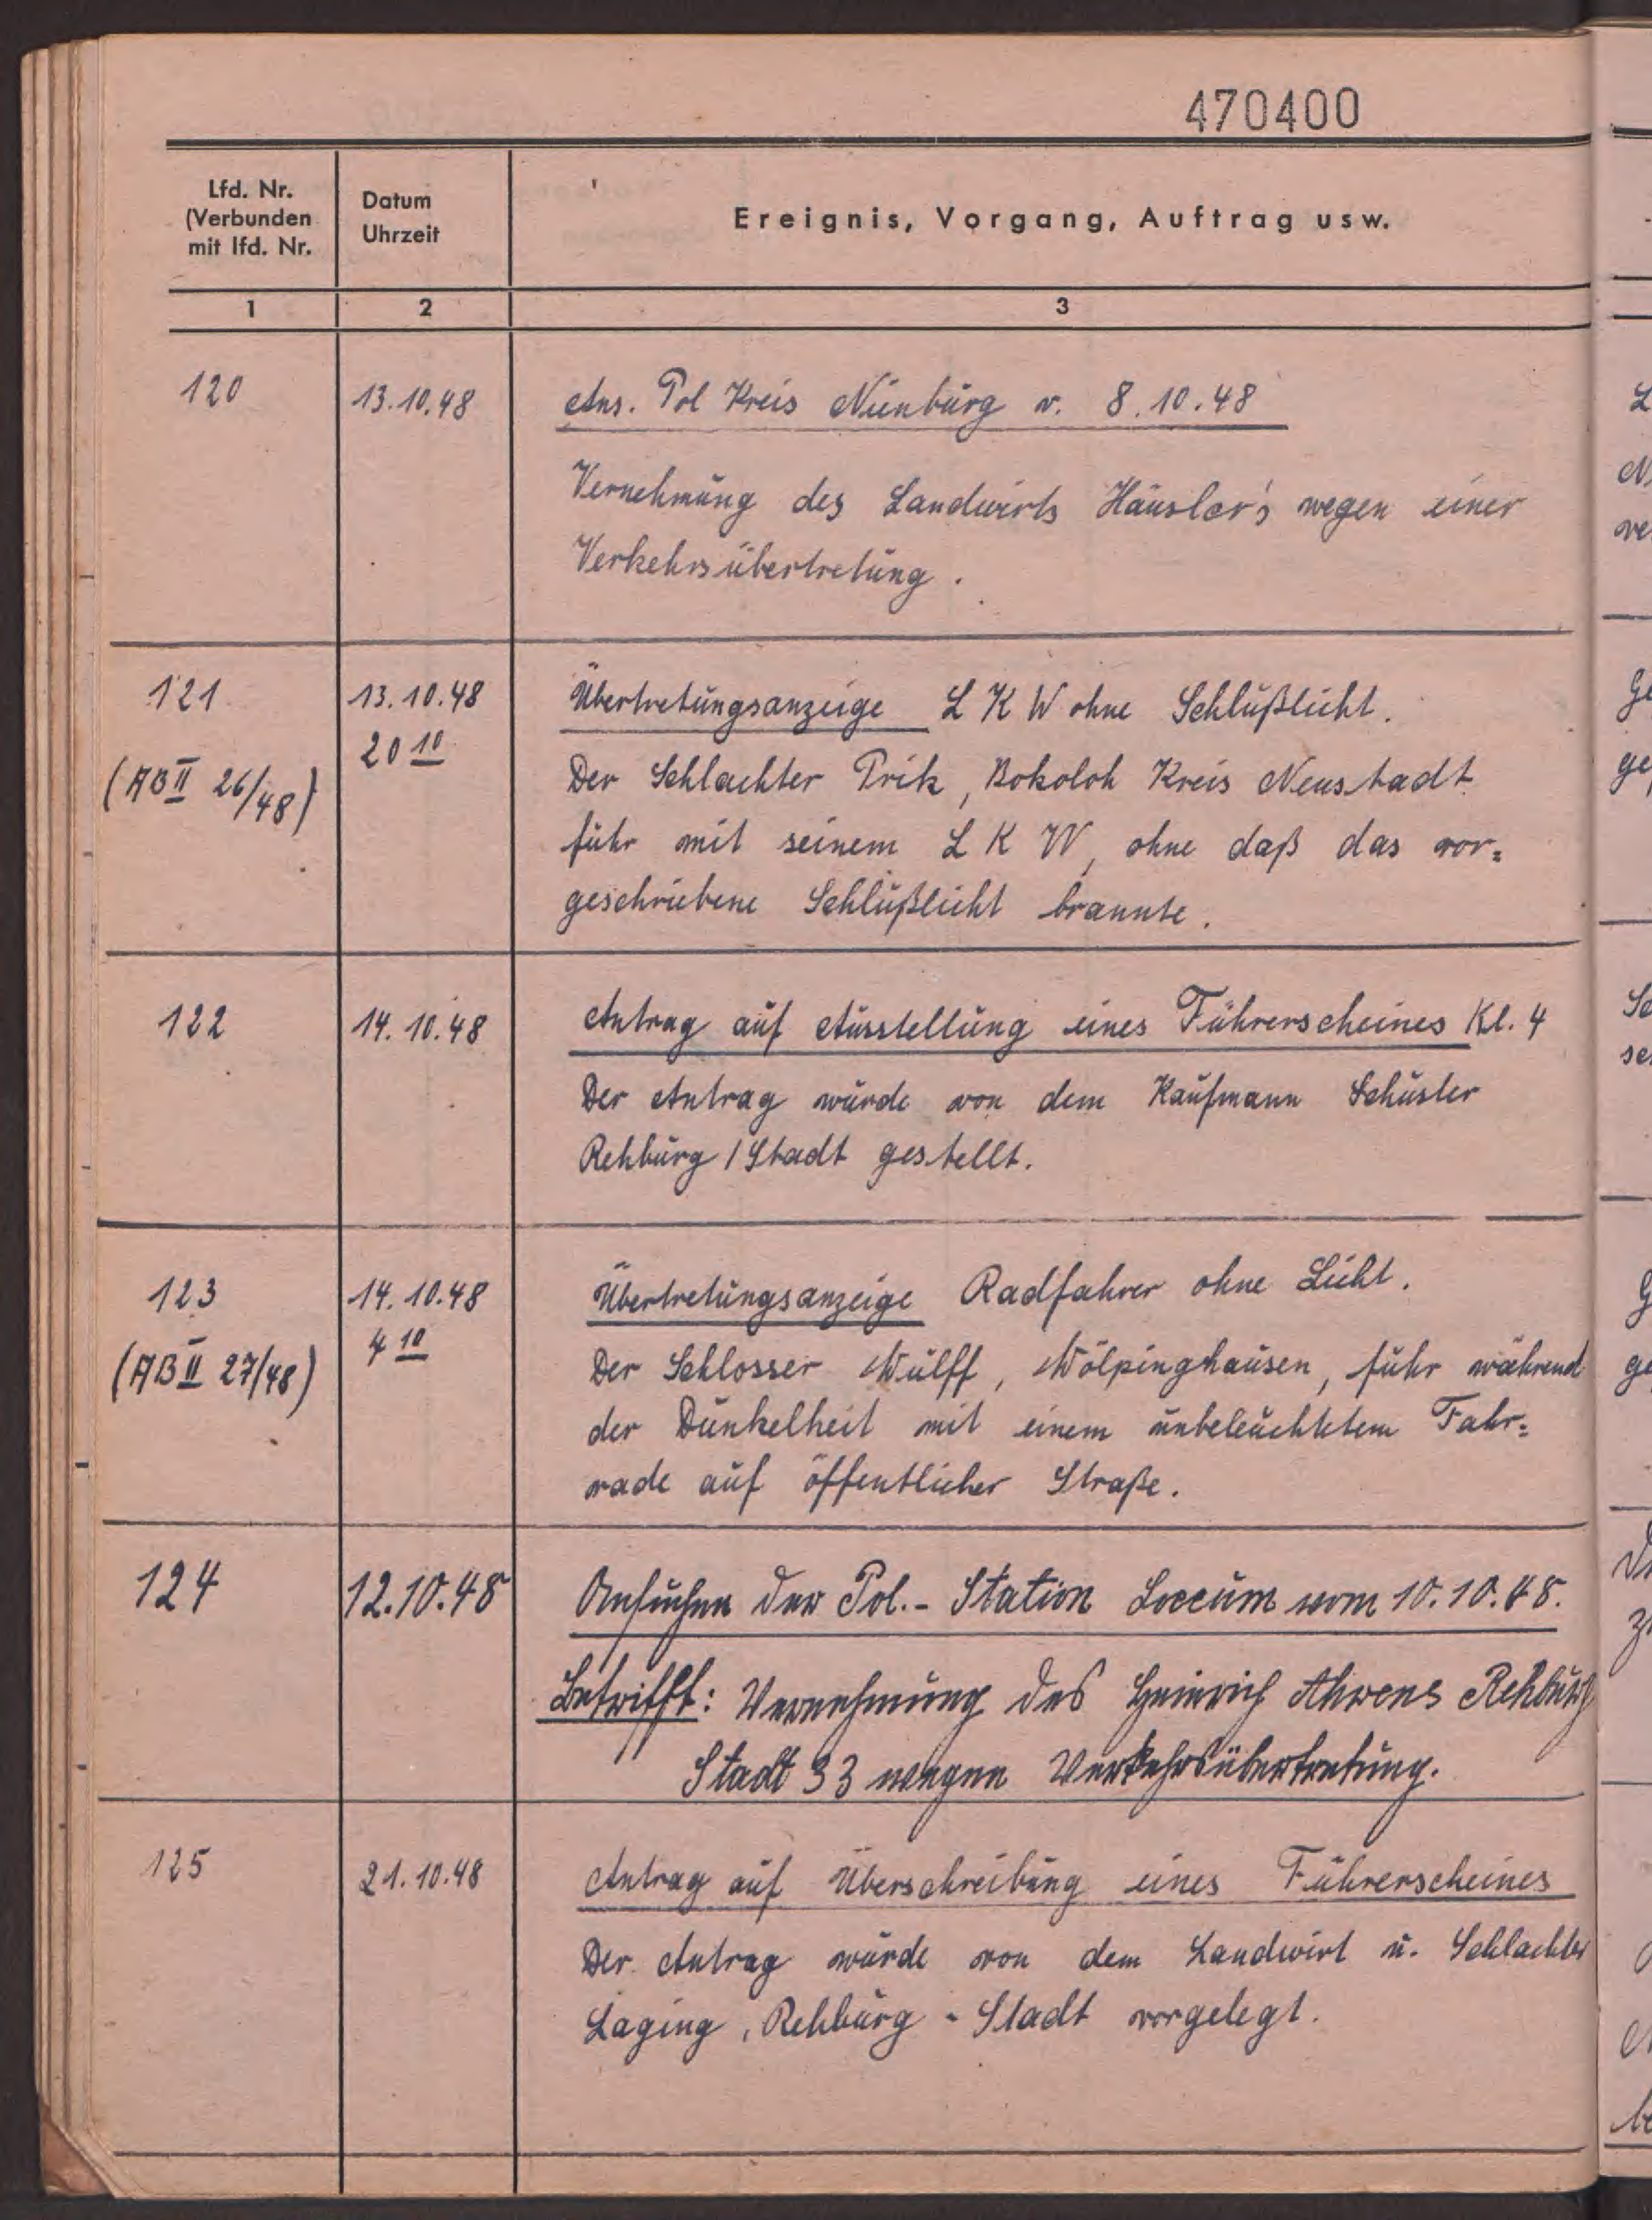 470400
Lfd. Nr.
(Verbunden
mit lfd. Nr.
Datum
Uhrzeit
Ereignis, Vorgang, Auftrag usw.
1 2 3
120 13.10.48 Ans. Pol Kreis Nienburg v. 8.10.48
Vernehmung des Landwirts Häusler's wegen einer
Verkehrsübertretung.
121 13.10.48 Übertretungsanzeige L K W ohne Schlußlicht.
(AB II 26/48) 20 10 Der Schlachter Prik, Bokoloh Kreis Neustadt
fuhr mit seinem L K W, ohne daß das vor=
geschriebene Schlußlicht brannte.
122 14.10.48 Antrag auf Ausstellung eines Führerscheines Kl. 4
Der Antrag wurde von dem Kaufmann Schuster
Rehburg / Stadt gestellt.
123 14.10.48 Übertretungsanzeige Radfahrer ohne Licht.
(AB II 27/48) 4 10 Der Schlosser Wulff, Wölpinghausen, fuhr während
der Dunkelheit mit einem unbeleuchtetem Fahr=
rade auf öffentlicher Straße.
124 12.10.48 Ansuchen der Pol.- Station Loccum vom 10.10.48.
Betrifft: Vernehmung des Heinrich Ahrens Rehburg
Stadt 33 wegen Verkehrsübertretung.
125 21.10.48 Antrag auf Überschreibung eines Führerscheines
Der Antrag wurde von dem Landwirt u. Schlachter
Laging, Rehburg - Stadt vorgelegt.